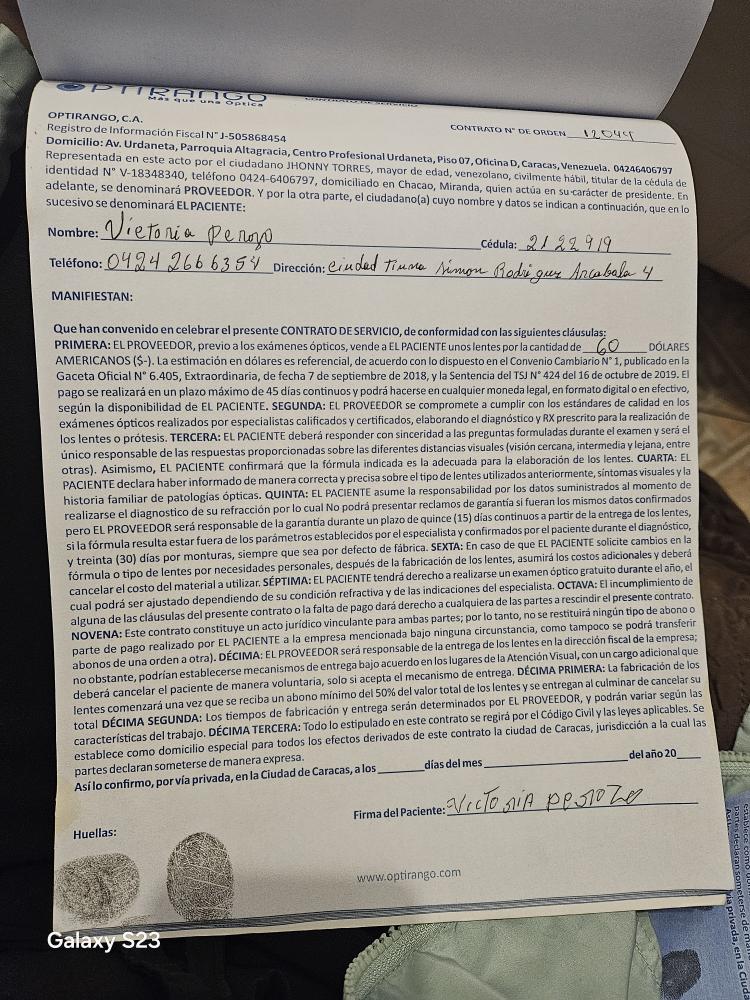 OPTIRANGO
Más que una Óptica
CONTRATO DE SERVICIO
OPTIRANGO, C.A.
CONTRATO N° DE ORDEN 12044
Registro de Información Fiscal N° J-505868454
Domicilio: Av. Urdaneta, Parroquia Altagracia, Centro Profesional Urdaneta, Piso 07, Oficina D, Caracas, Venezuela. 04246406797
Representada en este acto por el ciudadano JHONNY TORRES, mayor de edad, venezolano, civilmente hábil, titular de la cédula de
identidad N° V-18348340, teléfono 0424-6406797, domiciliado en Chacao, Miranda, quien actúa en su carácter de presidente. En
adelante, se denominará PROVEEDOR. Y por la otra parte, el ciudadano(a) cuyo nombre y datos se indican a continuación, que en lo
sucesivo se denominará EL PACIENTE:
Nombre: Victoria Perozo Cédula: 2122919
Teléfono: 0424 2666354 Dirección: Ciudad Tiuna Simon Rodriguez Arcabala 4
MANIFIESTAN:
Que han convenido en celebrar el presente CONTRATO DE SERVICIO, de conformidad con las siguientes cláusulas:
PRIMERA: EL PROVEEDOR, previo a los exámenes ópticos, vende a EL PACIENTE unos lentes por la cantidad de 60 DÓLARES
AMERICANOS ($-). La estimación en dólares es referencial, de acuerdo con lo dispuesto en el Convenio Cambiario N° 1, publicado en la
Gaceta Oficial N° 6.405, Extraordinaria, de fecha 7 de septiembre de 2018, y la Sentencia del TSJ N° 424 del 16 de octubre de 2019. El
pago se realizará en un plazo máximo de 45 días continuos y podrá hacerse en cualquier moneda legal, en formato digital o en efectivo,
según la disponibilidad de EL PACIENTE. SEGUNDA: EL PROVEEDOR se compromete a cumplir con los estándares de calidad en los
exámenes ópticos realizados por especialistas calificados y certificados, elaborando el diagnóstico y RX prescrito para la realización de
los lentes o prótesis. TERCERA: EL PACIENTE deberá responder con sinceridad a las preguntas formuladas durante el examen y será el
único responsable de las respuestas proporcionadas sobre las diferentes distancias visuales (visión cercana, intermedia y lejana, entre
otras). Asimismo, EL PACIENTE confirmará que la fórmula indicada es la adecuada para la elaboración de los lentes. CUARTA: EL
PACIENTE declara haber informado de manera correcta y precisa sobre el tipo de lentes utilizados anteriormente, síntomas visuales y la
historia familiar de patologías ópticas. QUINTA: EL PACIENTE asume la responsabilidad por los datos suministrados al momento de
realizarse el diagnostico de su refracción por lo cual No podrá presentar reclamos de garantía si fueran los mismos datos confirmados
pero EL PROVEEDOR será responsable de la garantía durante un plazo de quince (15) días continuos a partir de la entrega de los lentes,
si la fórmula resulta estar fuera de los parámetros establecidos por el especialista y confirmados por el paciente durante el diagnóstico,
y treinta (30) días por monturas, siempre que sea por defecto de fábrica. SEXTA: En caso de que EL PACIENTE solicite cambios en la
fórmula o tipo de lentes por necesidades personales, después de la fabricación de los lentes, asumirá los costos adicionales y deberá
cancelar el costo del material a utilizar. SÉPTIMA: EL PACIENTE tendrá derecho a realizarse un examen óptico gratuito durante el año, el
cual podrá ser ajustado dependiendo de su condición refractiva y de las indicaciones del especialista. OCTAVA: El incumplimiento de
alguna de las cláusulas del presente contrato o la falta de pago dará derecho a cualquiera de las partes a rescindir el presente contrato.
NOVENA: Este contrato constituye un acto jurídico vinculante para ambas partes; por lo tanto, no se restituirá ningún tipo de abono o
parte de pago realizado por EL PACIENTE a la empresa mencionada bajo ninguna circunstancia, como tampoco se podrá transferir
abonos de una orden a otra). DÉCIMA: EL PROVEEDOR será responsable de la entrega de los lentes en la dirección fiscal de la empresa;
no obstante, podrían establecerse mecanismos de entrega bajo acuerdo en los lugares de la Atención Visual, con un cargo adicional que
deberá cancelar el paciente de manera voluntaria, solo si acepta el mecanismo de entrega. DÉCIMA PRIMERA: La fabricación de los
lentes comenzará una vez que se reciba un abono mínimo del 50% del valor total de los lentes y se entregan al culminar de cancelar su
total DÉCIMA SEGUNDA: Los tiempos de fabricación y entrega serán determinados por EL PROVEEDOR, y podrán variar según las
características del trabajo. DÉCIMA TERCERA: Todo lo estipulado en este contrato se regirá por el Código Civil y las leyes aplicables. Se
establece como domicilio especial para todos los efectos derivados de este contrato la ciudad de Caracas, jurisdicción a la cual las
partes declaran someterse de manera expresa.
Así lo confirmo, por vía privada, en la Ciudad de Caracas, a los ______ días del mes ______ del año 20___
Firma del Paciente: Victoria Perozo
Huellas:
www.optirango.com
Galaxy S23